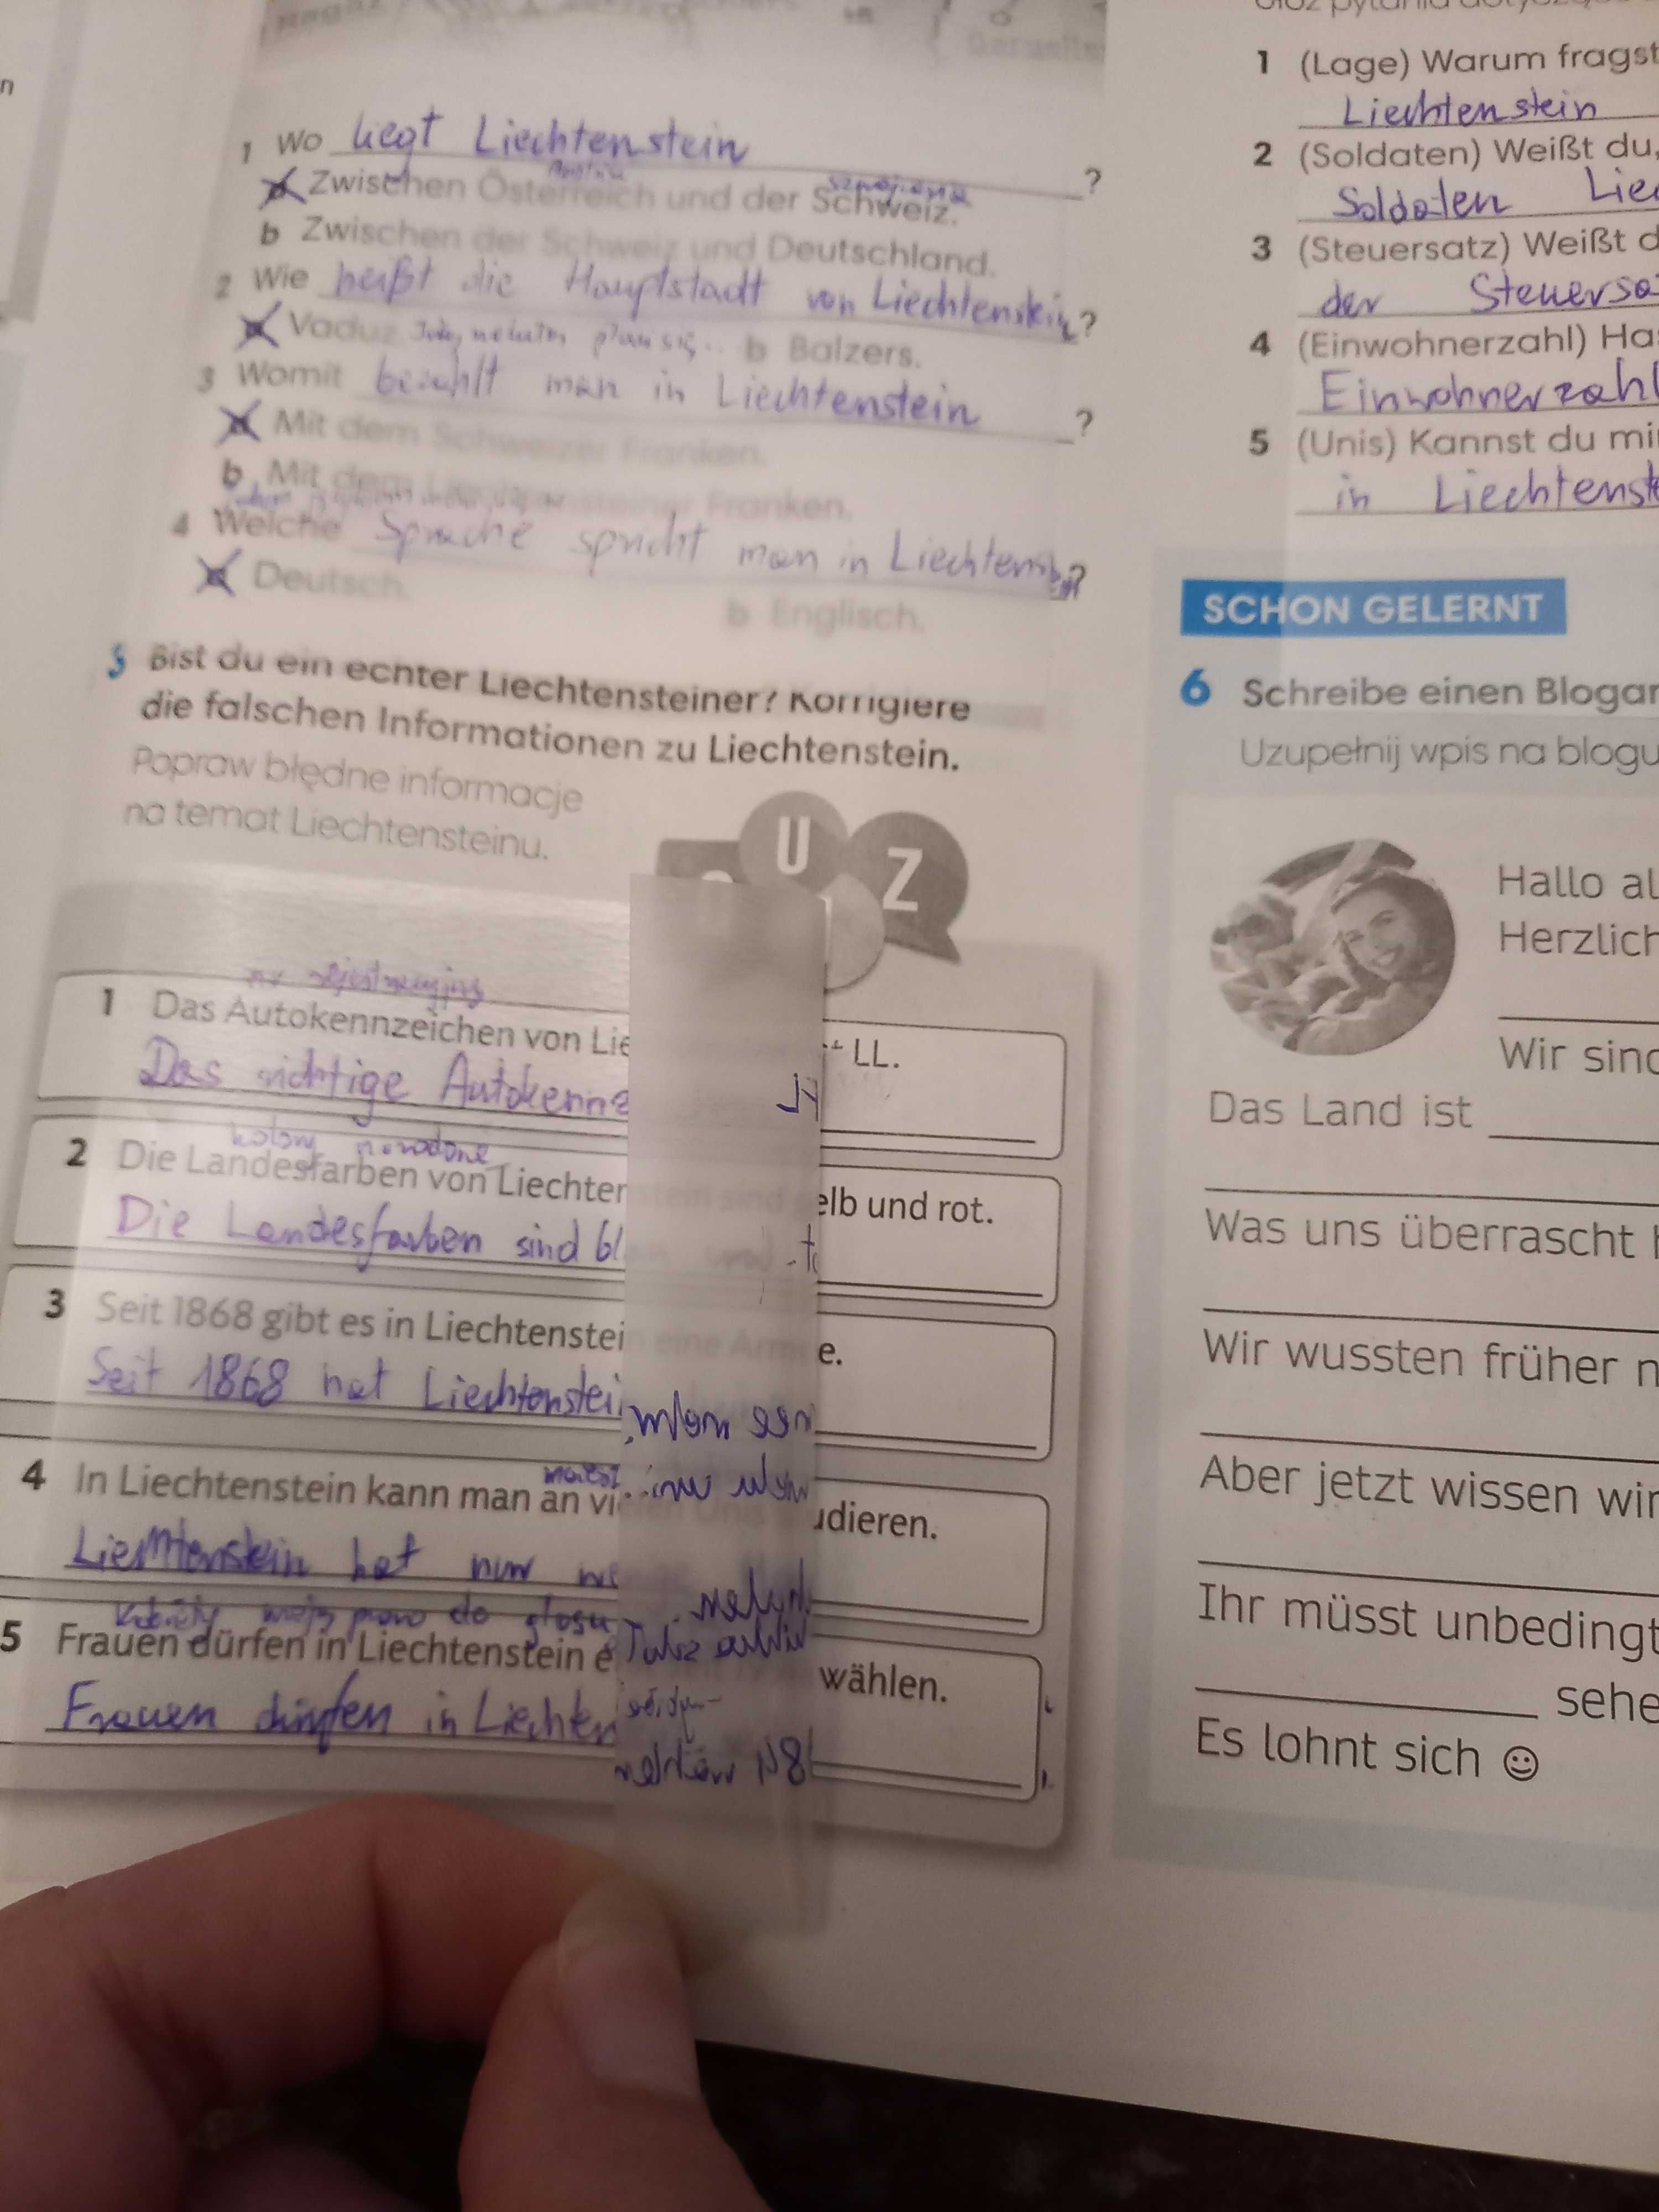 1 Wo liegt Liechtenstein ?
a Zwischen Österreich und der Schweiz.
b Zwischen der Schweiz und Deutschland.
2 Wie heißt die Hauptstadt von Liechtenstein ?
a Vaduz b Balzers.
3 Womit bezahlt man in Liechtenstein ?
a Mit dem Schweizer Franken.
b Mit dem Liechtensteiner Franken.
4 Welche Sprache spricht man in Liechtenstein ?
a Deutsch. b Englisch.
5 Bist du ein echter Liechtensteiner? Korrigiere
die falschen Informationen zu Liechtenstein.
Popraw błędne informacje
na temat Liechtensteinu.
U Z
1 Das Autokennzeichen von Lie LL.
Das richtige Autokennz
kolory narodowe
2 Die Landesfarben von Liechtenstein sind elb und rot.
Die Landesfarben sind bl
3 Seit 1868 gibt es in Liechtenstein eine Armee.
Seit 1868 hat Liechtenstein
4 In Liechtenstein kann man an vi udieren.
Liechtenstein hat nur
Kobiety mają prawo do głosu
5 Frauen dürfen in Liechtenstein e wählen.
Frauen dürfen in Liechten
1 (Lage) Warum fragst
Liechtenstein
2 (Soldaten) Weißt du,
Soldaten Lie
3 (Steuersatz) Weißt d
der Steuersa
4 (Einwohnerzahl) Ha
Einwohnerzahl
5 (Unis) Kannst du mi
in Liechtenst
SCHON GELERNT
6 Schreibe einen Blogar
Uzupełnij wpis na blogu
Hallo al
Herzlich
Wir sind
Das Land ist
Was uns überrascht h
Wir wussten früher n
Aber jetzt wissen wir
Ihr müsst unbedingt
sehe
Es lohnt sich ☺